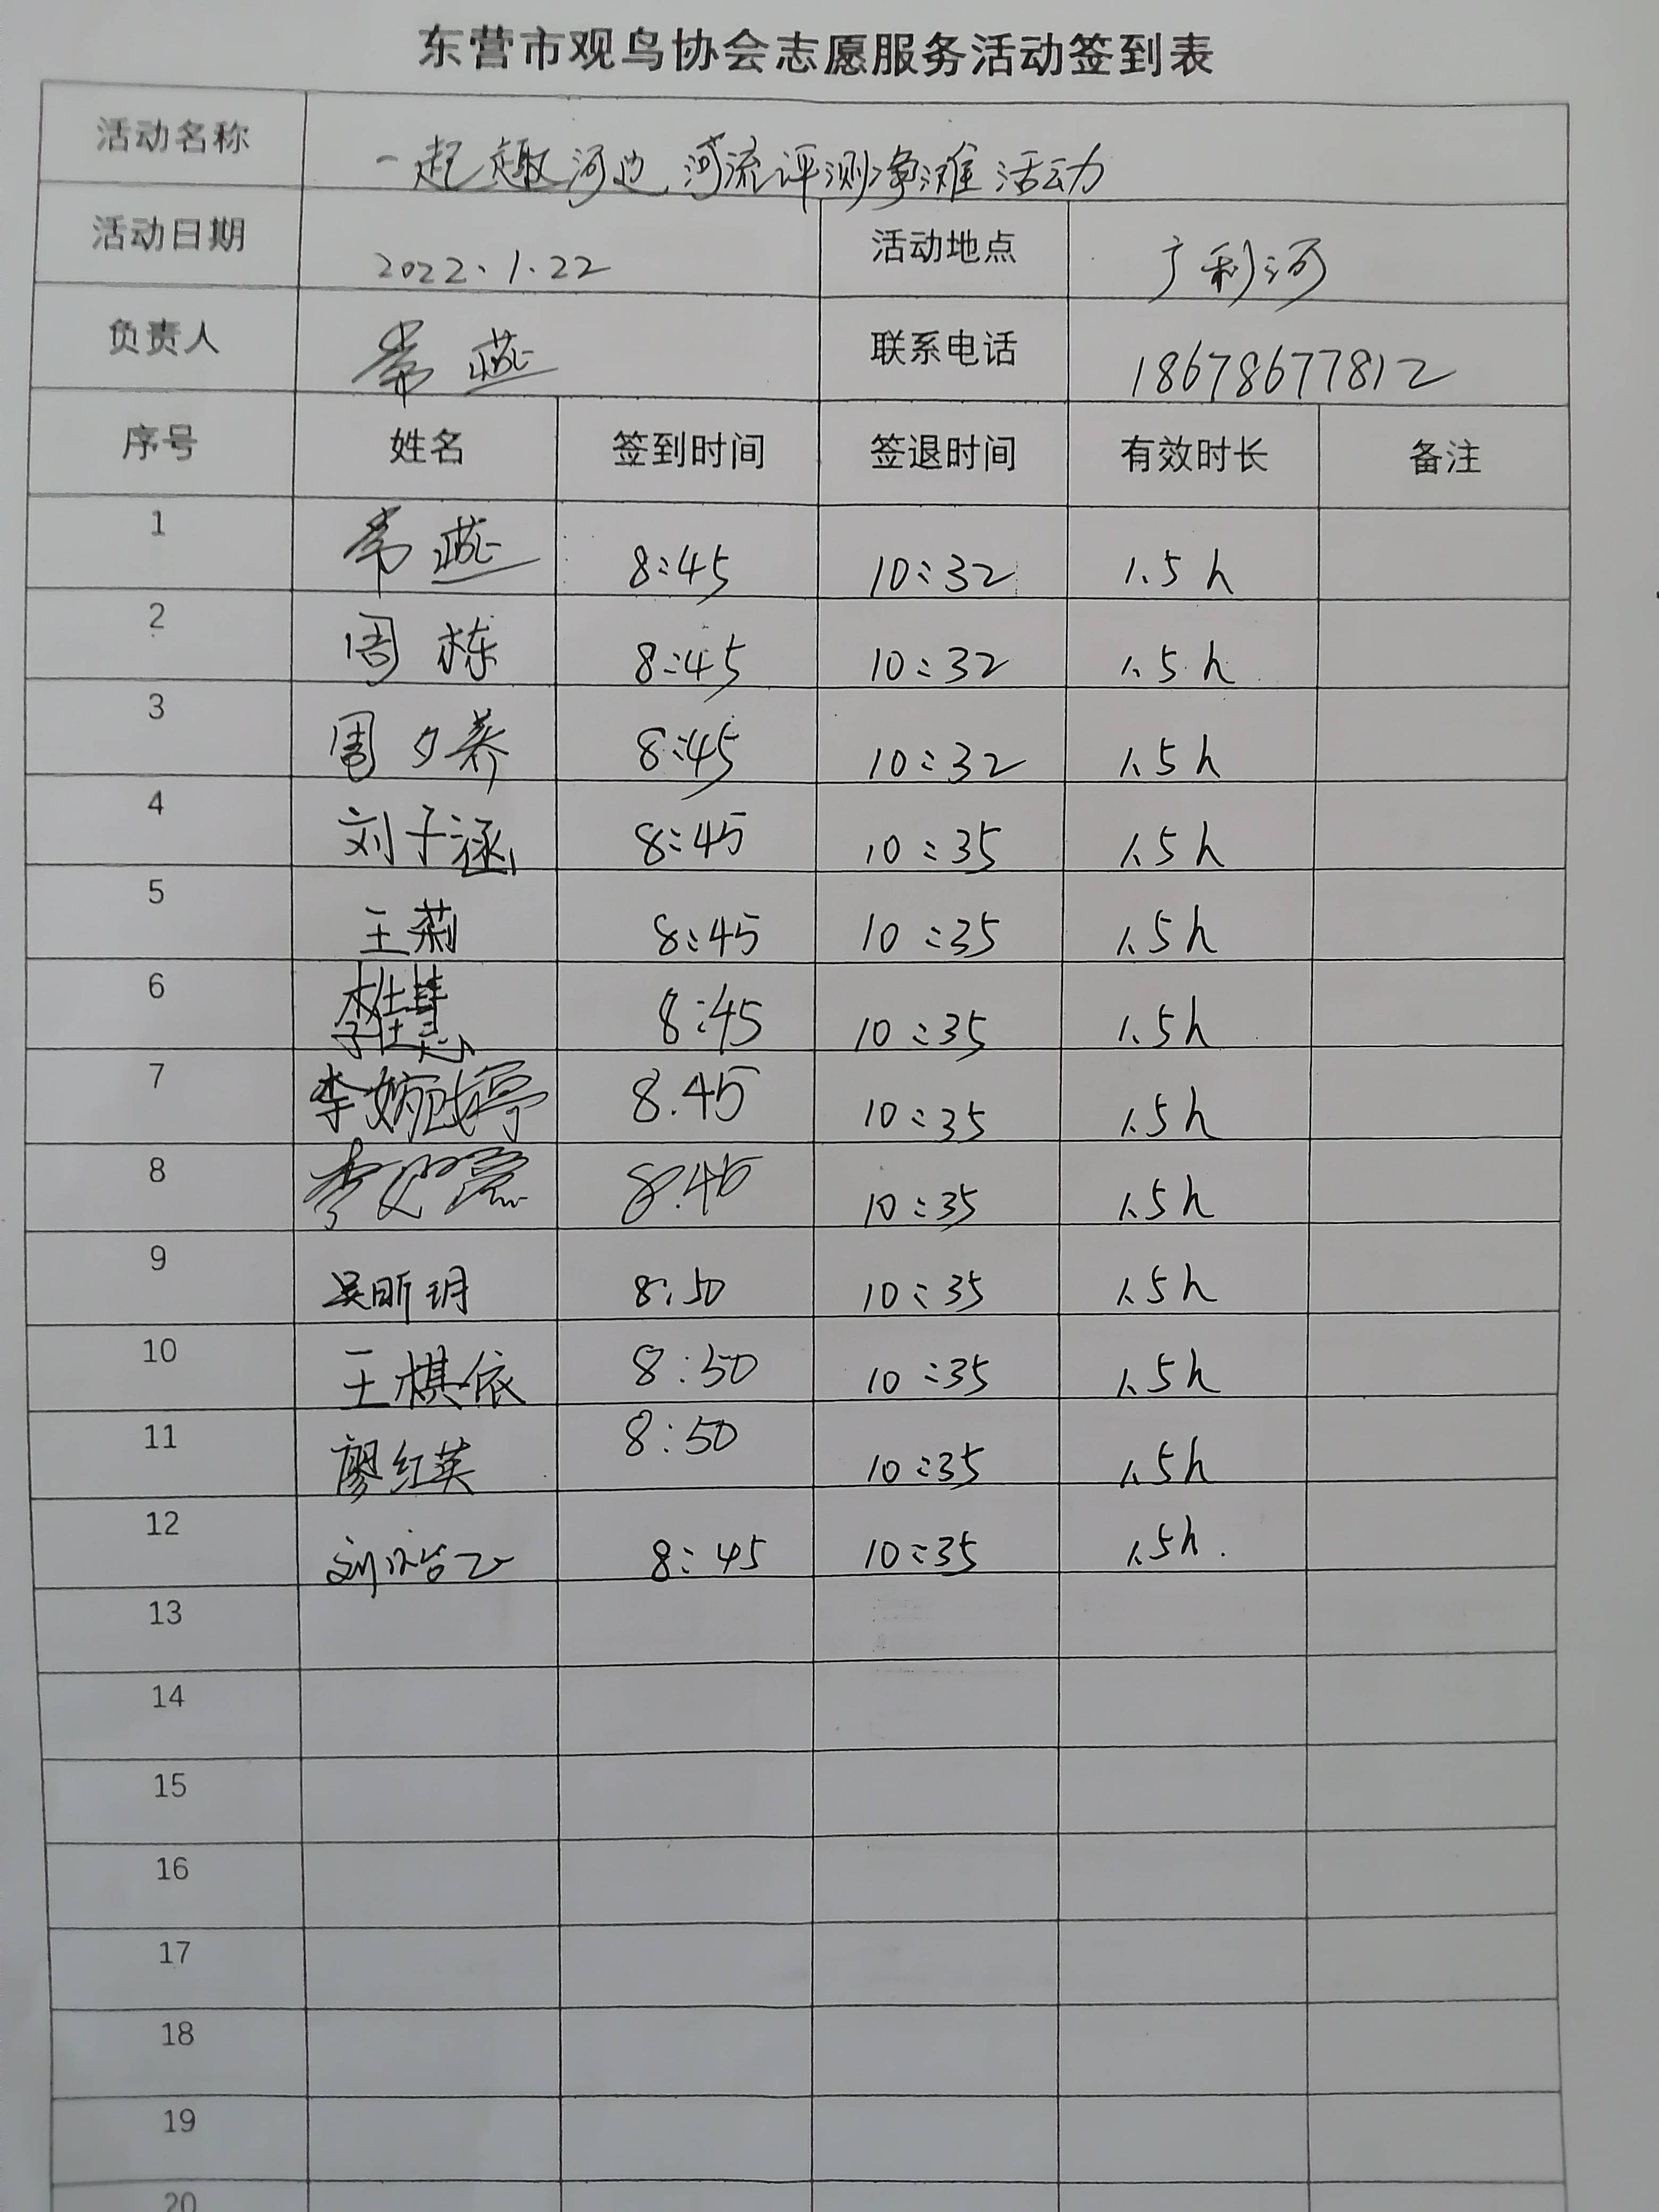 东营市观鸟协会志愿服务活动签到表
活动名称 一起趣河边 河流评测净滩活动
活动日期 2022.1.22 活动地点 广利河
负责人 常燕 联系电话 18678677812
序号 姓名 签到时间 签退时间 有效时长 备注
1 常燕 8:45 10:32 1.5h
2 周栋 8:45 10:32 1.5h
3 周夕荞 8:45 10:32 1.5h
4 刘子涵 8:45 10:35 1.5h
5 王菊 8:45 10:35 1.5h
6 李佳慧 8:45 10:35 1.5h
7 李婉婷 8.45 10:35 1.5h
8 李 8.45 10:35 1.5h
9 吴昕玥 8:50 10:35 1.5h
10 王棋依 8:50 10:35 1.5h
11 廖红英 8:50 10:35 1.5h
12 刘治工 8:45 10:35 1.5h.
13
14
15
16
17
18
19
20